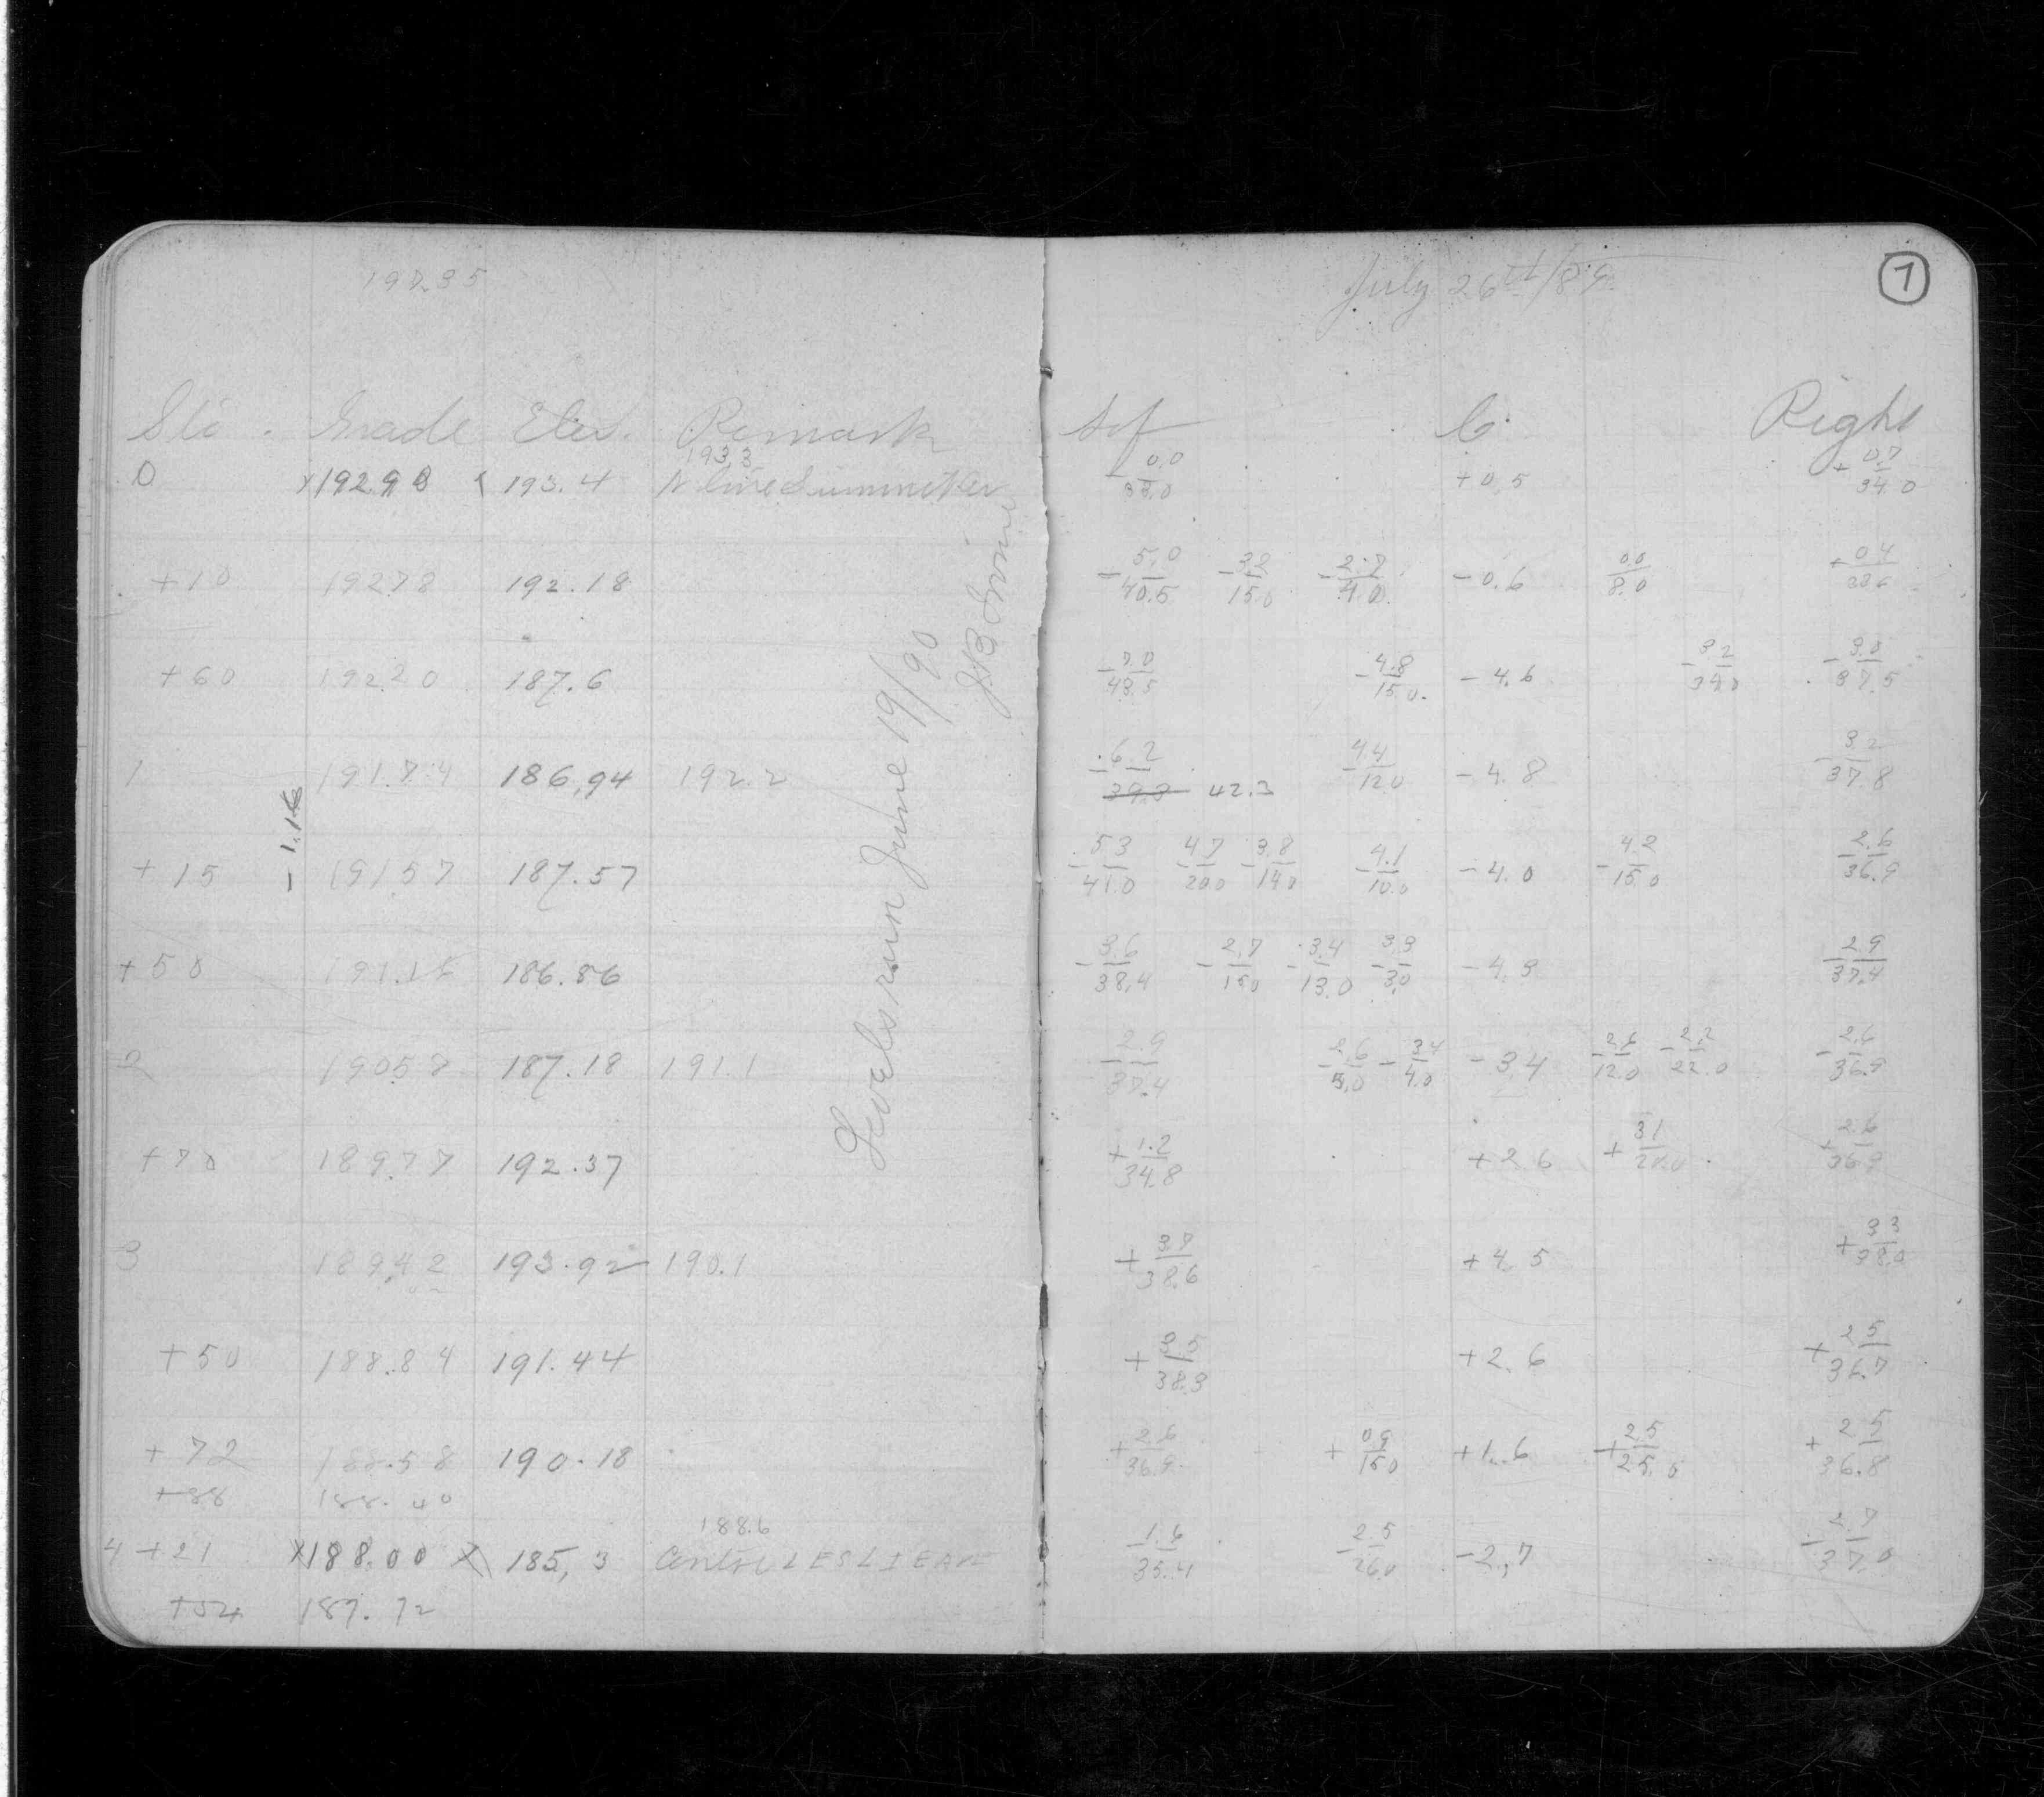 July 26th/89
7
Sta. Grade Elev. Remark Lef C. Right
193.3
0 x192.98 x 193.4 N line Summit Av - 0.0/33.0 +0.5 + 0.7/34.0
+10 192.78 192.18 - 5.0/40.5 - 3.2/15.0 - 2.7/4.0 -0.6 00/8.0 + 0.4/33.6
+60 192.20 187.6 - 7.0/43.5 - 4.8/15.0 -4.6 - 3.2/34.0 - 3.0/37.5
1 191.74 186.94 192.2 - 6.2/39.3 42.3 - 4.4/12.0 -4.8 - 3.2/37.8
- 1.16
+15 191.57 187.57 - 5.3/41.0 - 4.7/20.0 - 3.8/14.0 - 4.1/10.0 -4.0 - 4.2/15.0 - 2.6/36.9
+50 191.16 186.86 - 3.6/38.4 - 2.7/15.0 - 3.4/13.0 - 3.3/3.0 -4.3 - 2.9/37.4
2 190.58 187.18 191.1 - 2.9/37.4 - 2.6/5.0 - 3.4/4.0 -3.4 - 2.6/12.0 - 2.2/22.0 - 2.6/36.9
+70 189.77 192.37 + 1.2/34.8 +2.6 + 3.1/20.0 + 2.6/36.9
3 189.42 193.92 190.1 + 3.7/38.6 +4.5 + 3.3/38.0
+50 188.84 191.44 + 3.5/38.3 +2.6 + 2.5/36.7
+72 188.58 190.18 + 2.6/36.9 + 0.9/15.0 +1.6 + 2.5/25.0 + 2.5/36.8
+88 188.40
188.6
4 +21 x188.00 x 185.3 Centre LESLIE AVE - 1.6/35.4 - 2.5/26.0 -2.7 - 2.7/37.0
+54 187.72
Levels run June 19/90